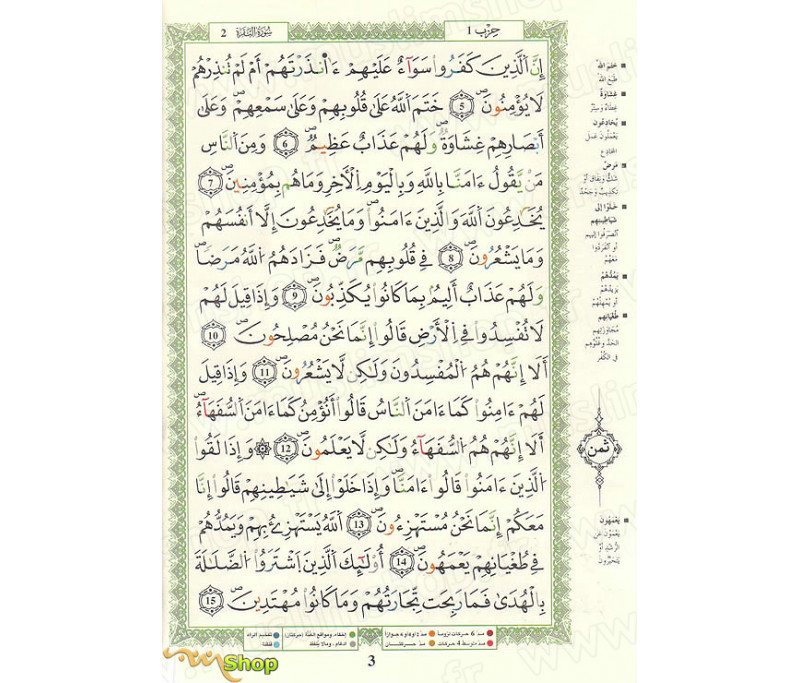 حِزْب 1
سُورَةُ الْبَقَرَة 2
إِنَّ اَ۬لذِينَ كَفَرُواْ سَوَآءٌ عَلَيْهِمُۥٓ ءَآنذَرْتَهُمُۥٓ أَمْ لَمْ تُنذِرْهُمْ
لَا يُؤْمِنُونَ 5 خَتَمَ اَ۬للَّهُ عَلَىٰ قُلُوبِهِمْ وَعَلَىٰ سَمْعِهِمْ وَعَلَىٰ
أَبْصَٰرِهِمْ غِشَٰوَةٌ وَلَهُمْ عَذَابٌ عَظِيمٌ 6 وَمِنَ اَ۬لنَّاسِ
مَنْ يَّقُولُ ءَامَنَّا بِاللَّهِ وَبِالْيَوْمِ اِ۬لَاخِرِ وَمَا هُم بِمُؤْمِنِينَ 7
يُخَٰدِعُونَ اَ۬للَّهَ وَالذِينَ ءَامَنُواْ وَمَا يُخَٰدِعُونَ إِلَّآ أَنفُسَهُمْ
وَمَا يَشْعُرُونَ 8 فِے قُلُوبِهِم مَّرَضٌ فَزَادَهُمُ اُ۬للَّهُ مَرَضاً
وَلَهُمْ عَذَابٌ أَلِيمٌ بِمَا كَانُواْ يُكَذِّبُونَ 9 وَإِذَا قِيلَ لَهُمْ
لَا تُفْسِدُواْ فِے اِ۬لَارْضِ قَالُوٓاْ إِنَّمَا نَحْنُ مُصْلِحُونَ 10
أَلَآ إِنَّهُمْ هُمُ اُ۬لْمُفْسِدُونَ وَلَٰكِن لَّا يَشْعُرُونَ 11 وَإِذَا قِيلَ
لَهُمُۥٓ ءَامِنُواْ كَمَآ ءَامَنَ اَ۬لنَّاسُ قَالُوٓاْ أَنُومِنُ كَمَآ ءَامَنَ اَ۬لسُّفَهَآءُ
أَلَآ إِنَّهُمْ هُمُ اُ۬لسُّفَهَآءُ وَلَٰكِن لَّا يَعْلَمُونَ 12 ۞ وَإِذَا لَقُواْ
اُ۬لذِينَ ءَامَنُواْ قَالُوٓاْ ءَامَنَّا وَإِذَا خَلَوْاْ إِلَىٰ شَيَٰطِينِهِمْ قَالُوٓاْ إِنَّا
مَعَكُمُۥٓ إِنَّمَا نَحْنُ مُسْتَهْزِءُونَ 13 اَ۬للَّهُ يَسْتَهْزِئُ بِهِمْ وَيَمُدُّهُمْ
فِے طُغْيَٰنِهِمْ يَعْمَهُونَ 14 أُوْلَٰٓئِكَ اَ۬لذِينَ اَ۪شْتَرَوُاْ اُ۬لضَّلَٰلَةَ
بِالْهُدَىٰ فَمَا رَبِحَت تِّجَٰرَتُهُمْ وَمَا كَانُواْ مُهْتَدِينَ 15
ختم الله
طبع الله
غشاوة
غطاء وستر
يخادعون
يعملون عمل
المخادع
مرض
شك ونفاق أو
تكذيب وجحد
خلوا إلى
شياطينهم
انصرفوا إليهم
أو انفردوا
معهم
يمدهم
يزيدهم
أو يمهلهم
طغيانهم
مجاوزتهم
الحد وغلوهم
في الكفر
ثمن
يعمهون
يعمون عن
الرشد أو
يتحيرون
مد 6 حركات لزوما
مد 2 أو 4 أو 6 جوازا
إخفاء، ومواقع الغنة (حركتان)
تفخيم الراء
مد متوسط 4 حركات
مد حركتان
ادغام، وما لا يلفظ
قلقلة
3
Shop